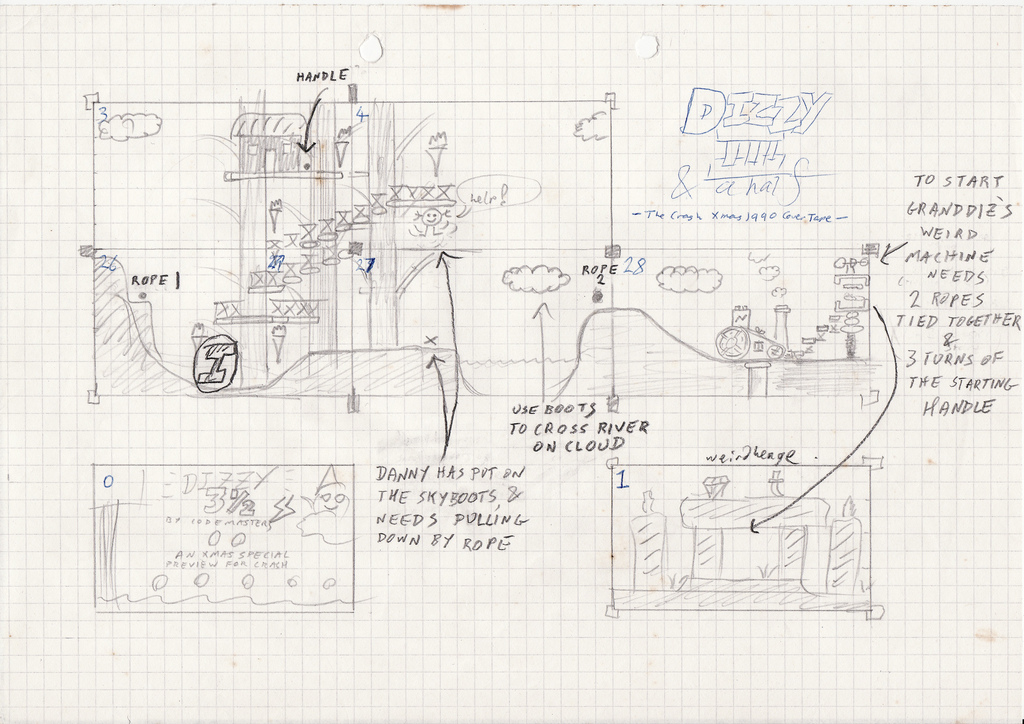 HANDLE
3
4
DIZZY
THREE
& a half
- The Crash Xmas 1990 Cover Tape -
help!
TO START
GRANDDIZ'S
WEIRD
MACHINE
NEEDS
2 ROPES
TIED TOGETHER
&
3 TURNS OF
THE STARTING
HANDLE
26
27
28
ROPE 1
ROPE
2
I
X
USE BOOTS
TO CROSS RIVER
ON CLOUD
DANNY HAS PUT ON
THE SKYBOOTS &
NEEDS PULLING
DOWN BY ROPE
0
DIZZY
3 1/2
BY CODEMASTERS
AN XMAS SPECIAL
PREVIEW FOR CRASH
weirdhenge
1